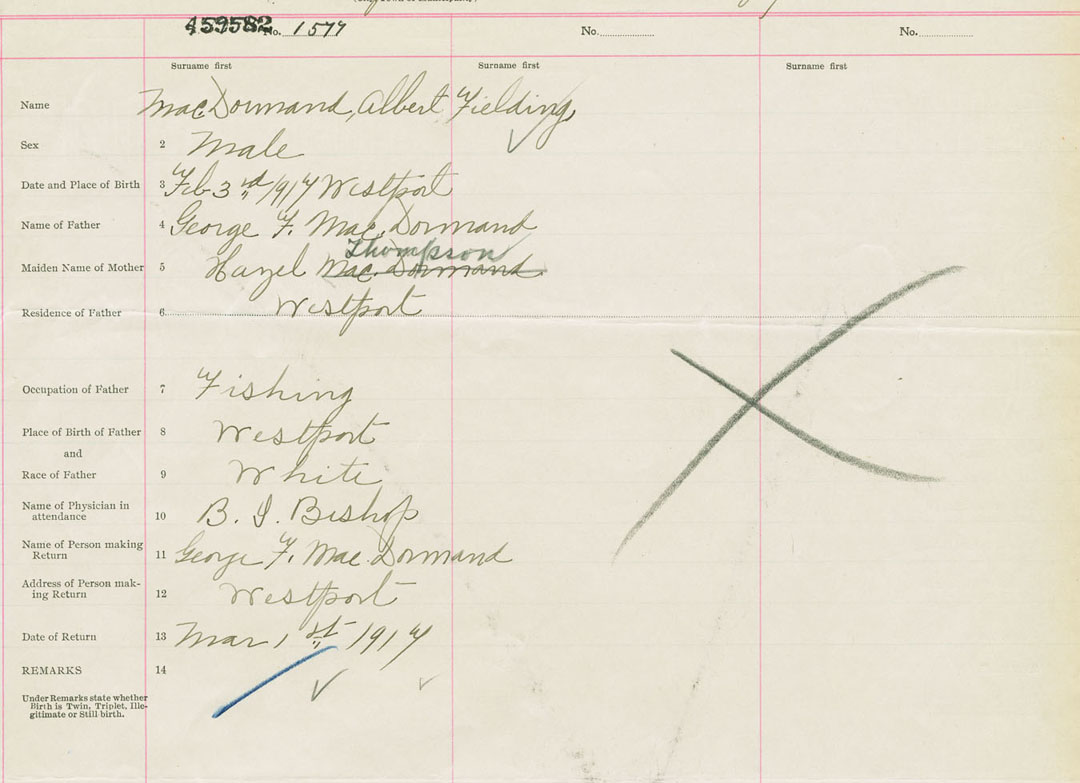 459582 No. 1577 No. No.
Surname first Surname first Surname first
Name MacDormand, Albert Fielding
Sex 2 Male
Date and Place of Birth 3 Feb 3rd 1917 Westport
Name of Father 4 George F. Mac. Dormand
Thompson
Maiden Name of Mother 5 Hazel Mac. Dormand
Residence of Father 6 Westport
Occupation of Father 7 Fishing
Place of Birth of Father 8 Westport
and
Race of Father 9 White
Name of Physician in
attendance 10 B. I. Bishop
Name of Person making
Return 11 George F. Mac. Dormand
Address of Person mak-
ing Return 12 Westport
Date of Return 13 Mar 1st 1917
REMARKS 14
Under Remarks state whether
Birth is Twin, Triplet, Ille-
gitimate or Still birth.